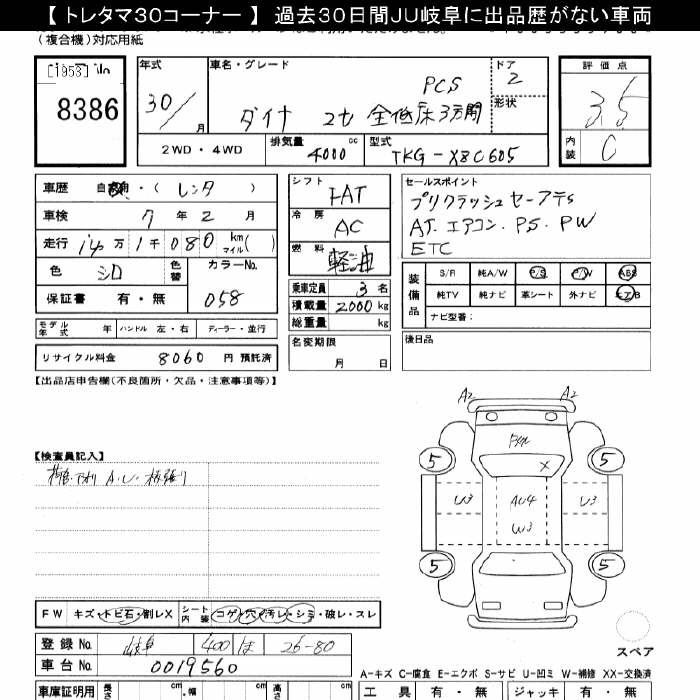 【 トレタマ30コーナー 】 過去30日間JU岐阜に出品歴がない車両
(複合機)対応用紙
8386
年式 車名・グレード ドア 評価点
30/ 月 ダイナ 2t 全低床3方開 PCS 2 形状 3.5
2WD・4WD 排気量 4000 cc 型式 TKG-XZC605 内装 C
車歴 自家用・( レンタ )
車検 7 年 2 月
走行 14 万 1 千 080 km マイル( )
色 シロ 色替 カラーNo. 058
保証書 有・無
モデル年式 年 ハンドル 左・右 ディーラー・並行
リサイクル料金 8060 円 預託済
シフト FAT
冷房 AC
燃料 軽油
乗車定員 3 名
積載量 2000 kg
総重量 kg
名変期限 月 日
セールスポイント
プリクラッシュセーフティ
AT. エアコン. PS. PW
ETC
装備品 S/R 純A/W P/S P/W ABS
純TV 純ナビ 革シート 外ナビ エアB
ナビ型番:
後日品
【出品店申告欄(不良箇所・欠品・注意事項等)】
【検査員記入】
A2 A2
5 5
U3 AU4 U3
W3
5 5
スペア
FW キズ・トビ石・割レX シート内装 コゲ・穴・汚レ・シミ・破レ・スレ
登録No. 岐阜 400 ほ 26-80
車台No. 0019560
A-キズ C-腐食 E-エクボ S-サビ U-凹ミ W-補修 XX-交換済
車庫証明用 長さ cm 幅 cm 高さ cm 工具 有・無 ジャッキ 有・無